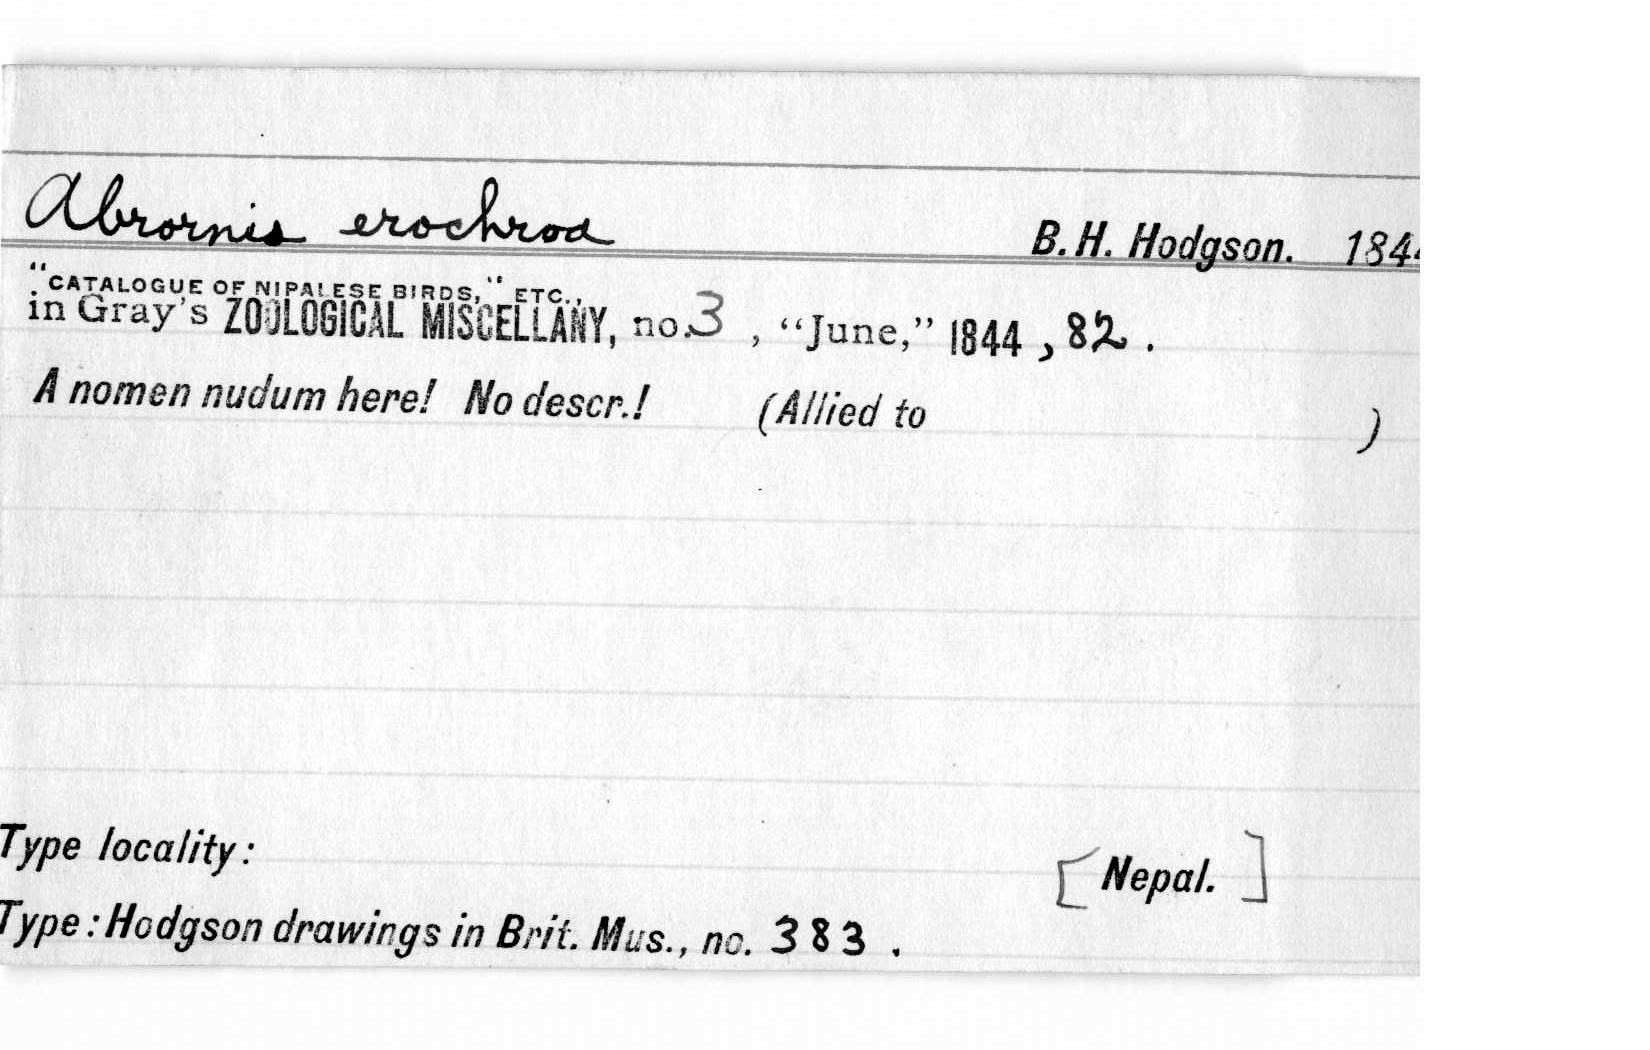 Abrornis erochroa B. H. Hodgson. 1844
"CATALOGUE OF NIPALESE BIRDS," ETC.,
in Gray's ZOOLOGICAL MISCELLANY, no. 3, "June," 1844, 82.
A nomen nudum here! No descr.! (Allied to )
Type locality: [Nepal.]
Type: Hodgson drawings in Brit. Mus., no. 383.